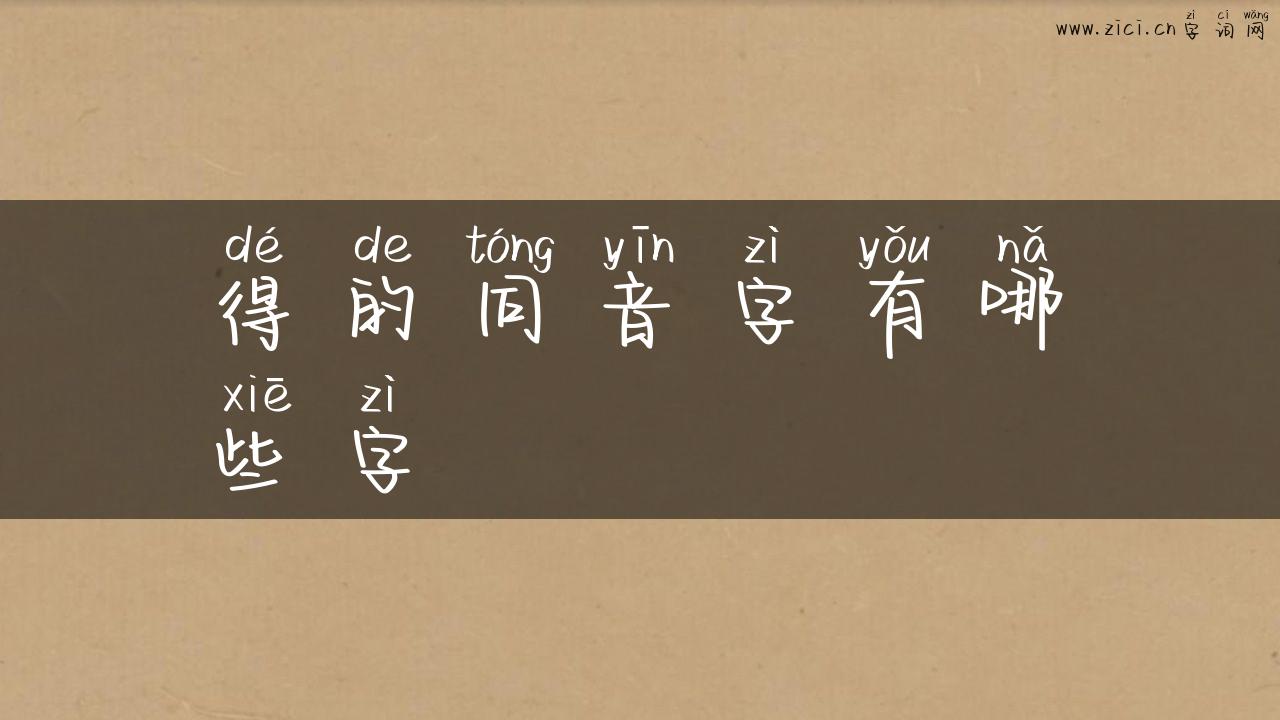 zì cí wǎng
www.zici.cn 字词网
dé de tóng yīn zì yǒu nǎ
得的同音字有哪
xiē zì
些字